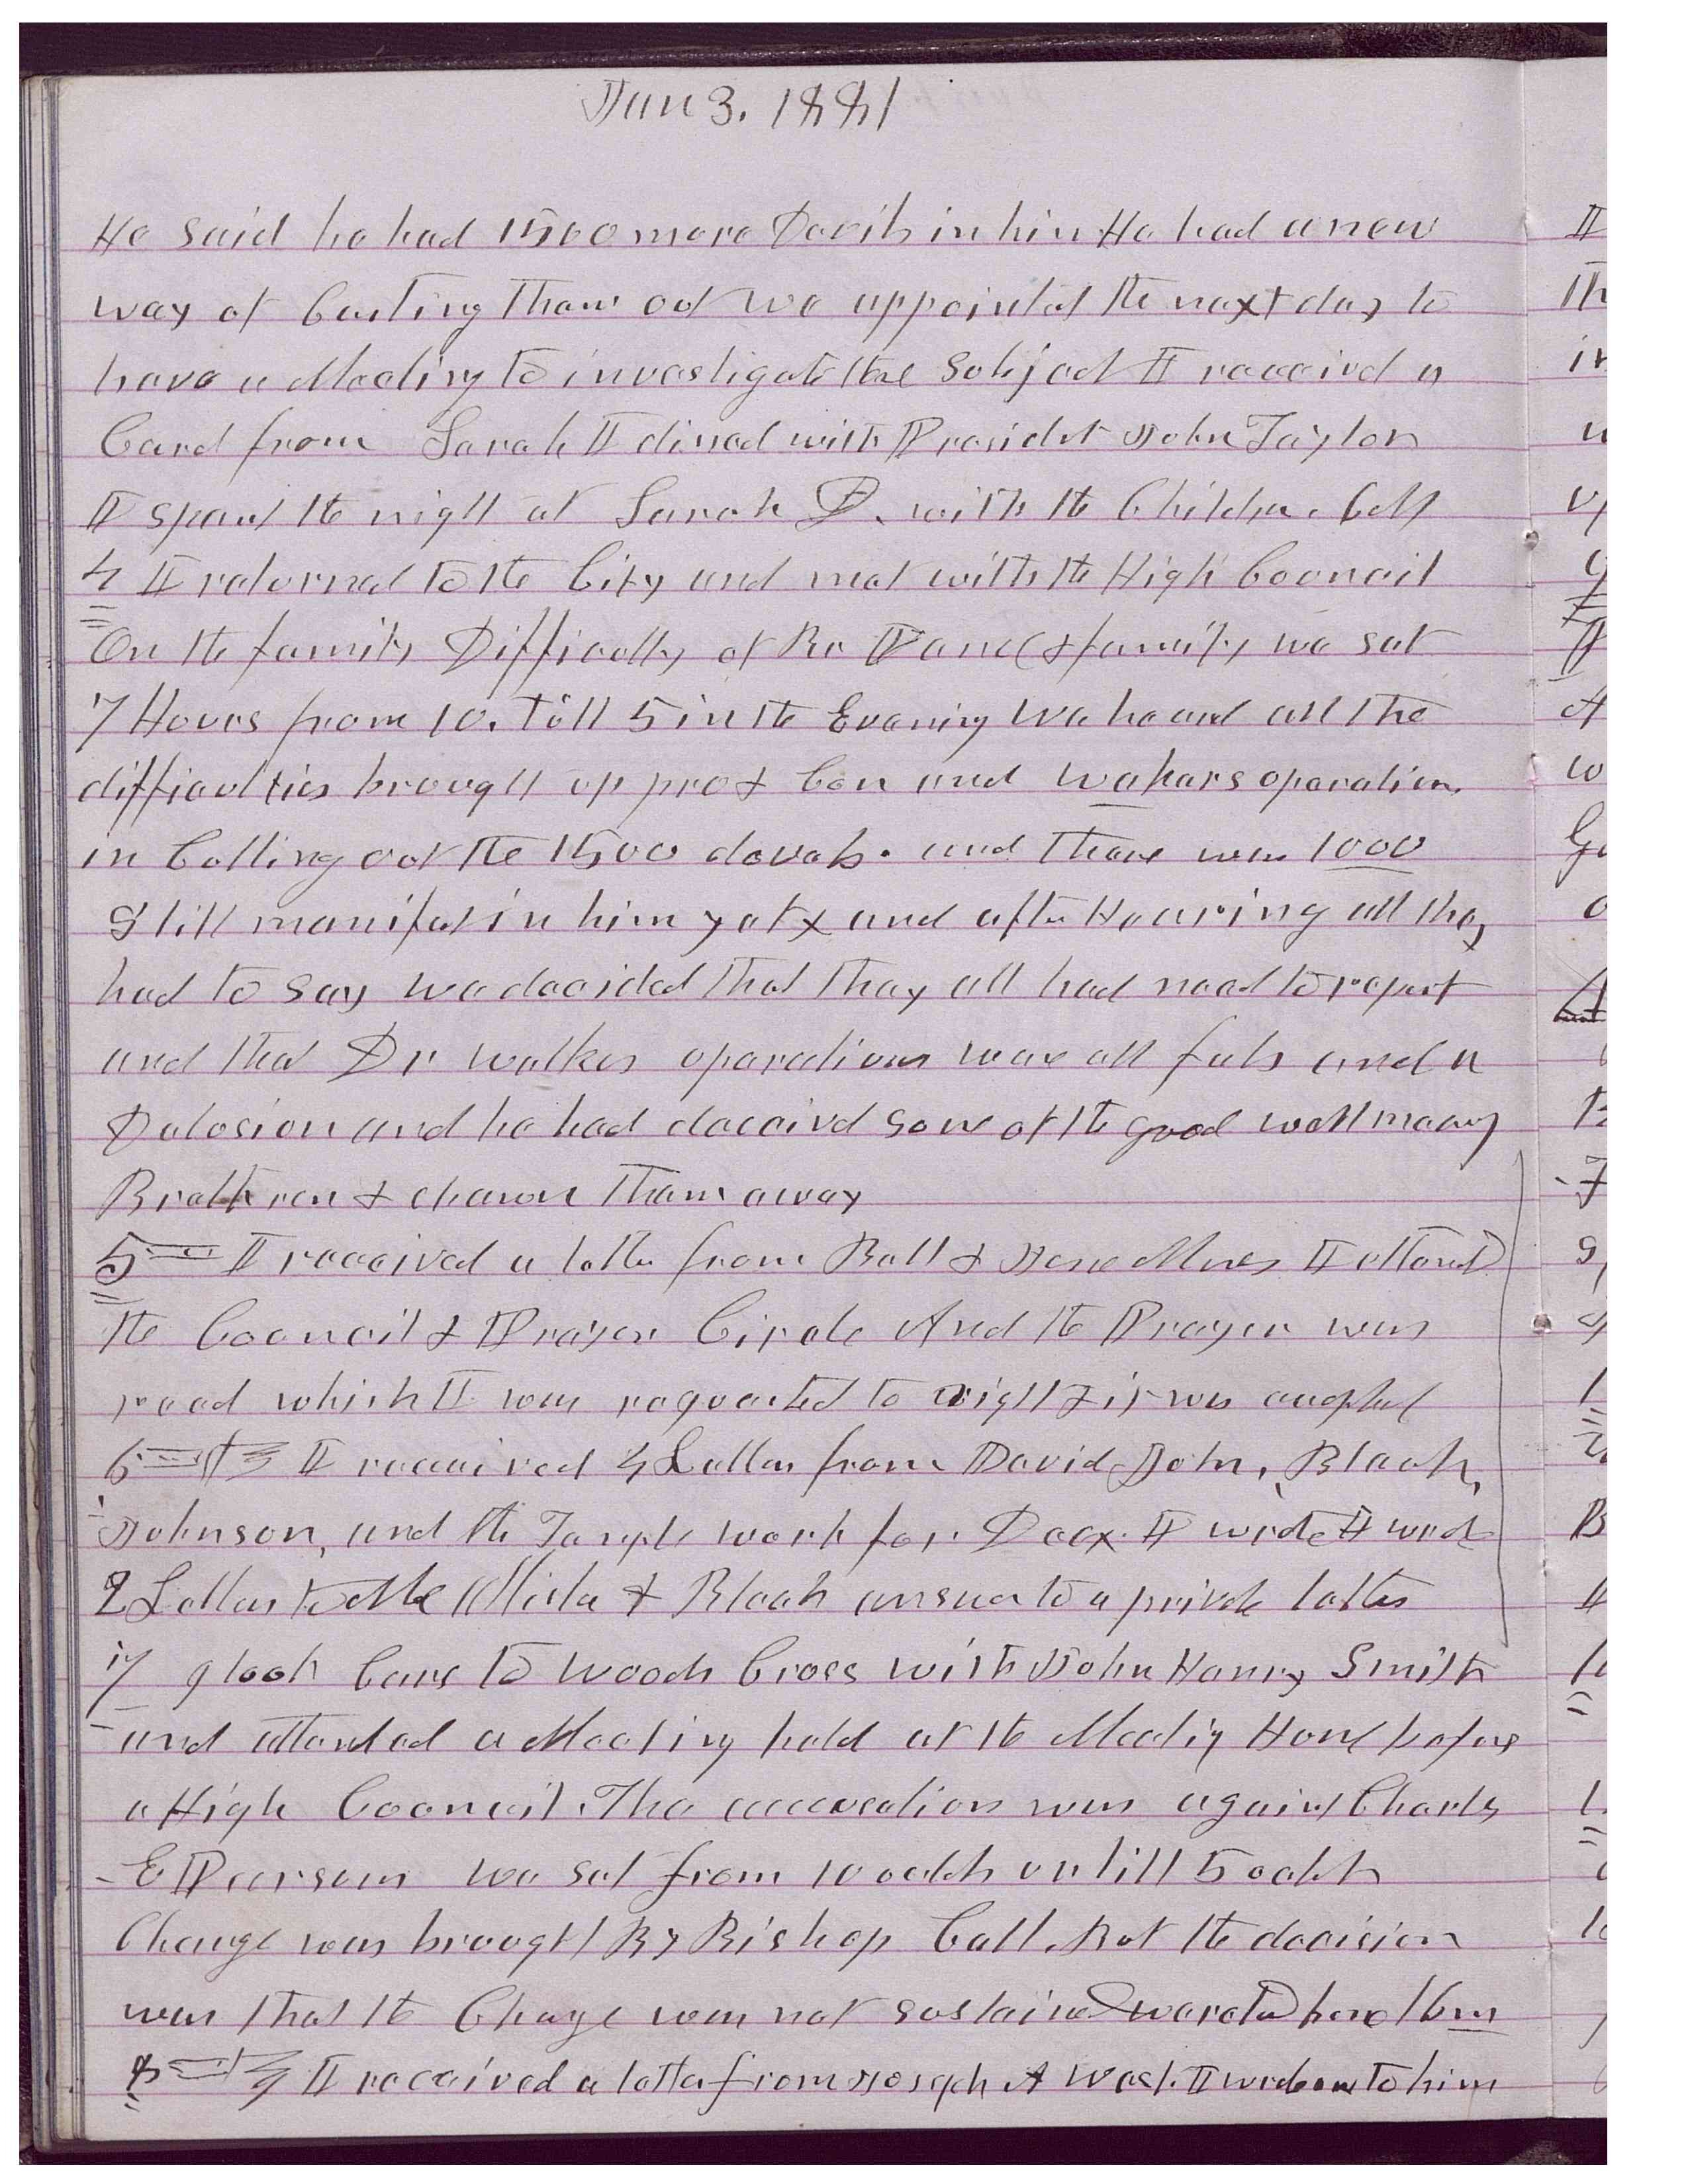 Jan 3. 1881
He said he had 1500 more Devils in him He had a new
way of Casting them out we appointed the next day to
have a Meeting to investigate the Subject I received a
Card from Sarah I dined with President John Taylor
I spent the night at Sarah D. with the Children.
4 I returned to the City and met with the High Council
On the family Difficulty of Br & family we sat
7 Hours from 10. till 5 in the Evening We heard all the
difficulties brought up pro & Con and wakers operation
in Calling out the 1500 devels. and there were 1000
Still manifest in him yet & and after Hearing all they
had to say we decided that they all had need to repent
and that Dr walker operations ware all fals and a
Delusion and he had deceivd some of the good well meany
Brethren & drawn them away
5 I received a letter from Bell & I attend
the Council & Prayer Circle And the Prayer was
read which I was requested to wright & it was accepted
6 I received 4 Letters from David John, Black,
Johnson, and the Temple work for I wrote I wrote
2 Letters to & Black answer to a private letter
7 I took Cars to Woods Cross with John Henry Smith
and attended a Meeting held at the Meeting House before
a High Council. The accusation was against Charls
E Pearson we sat from 10 oclok untill 5 oclok
Charge was brought By Bishop Call. But the decision
was that the Charge was not sustained we retd home 16 m
8 I received a letter from Joseph A West. I wrote one to him